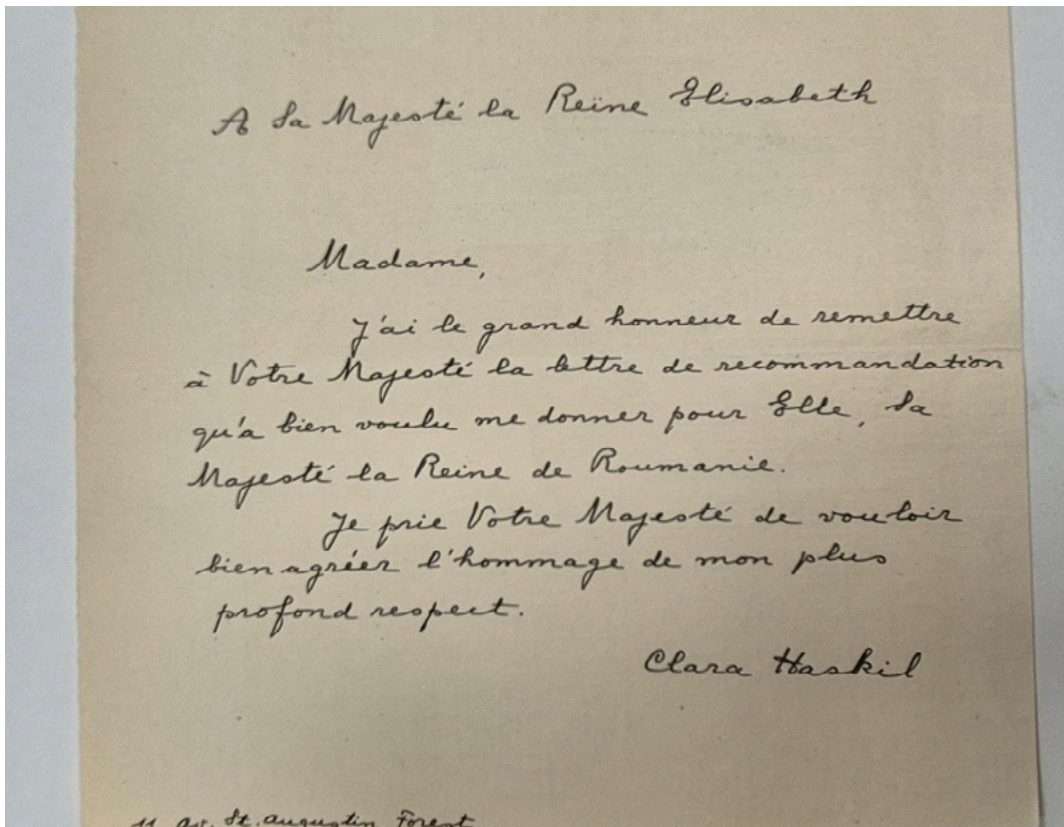 A Sa Majesté la Reine Elisabeth
Madame,
J'ai le grand honneur de remettre
à Votre Majesté la lettre de recommandation
qu'a bien voulu me donner pour Elle, Sa
Majesté la Reine de Roumanie.
Je prie Votre Majesté de vouloir
bien agréer l'hommage de mon plus
profond respect.
Clara Haskil
11 av. St. Augustin Forest